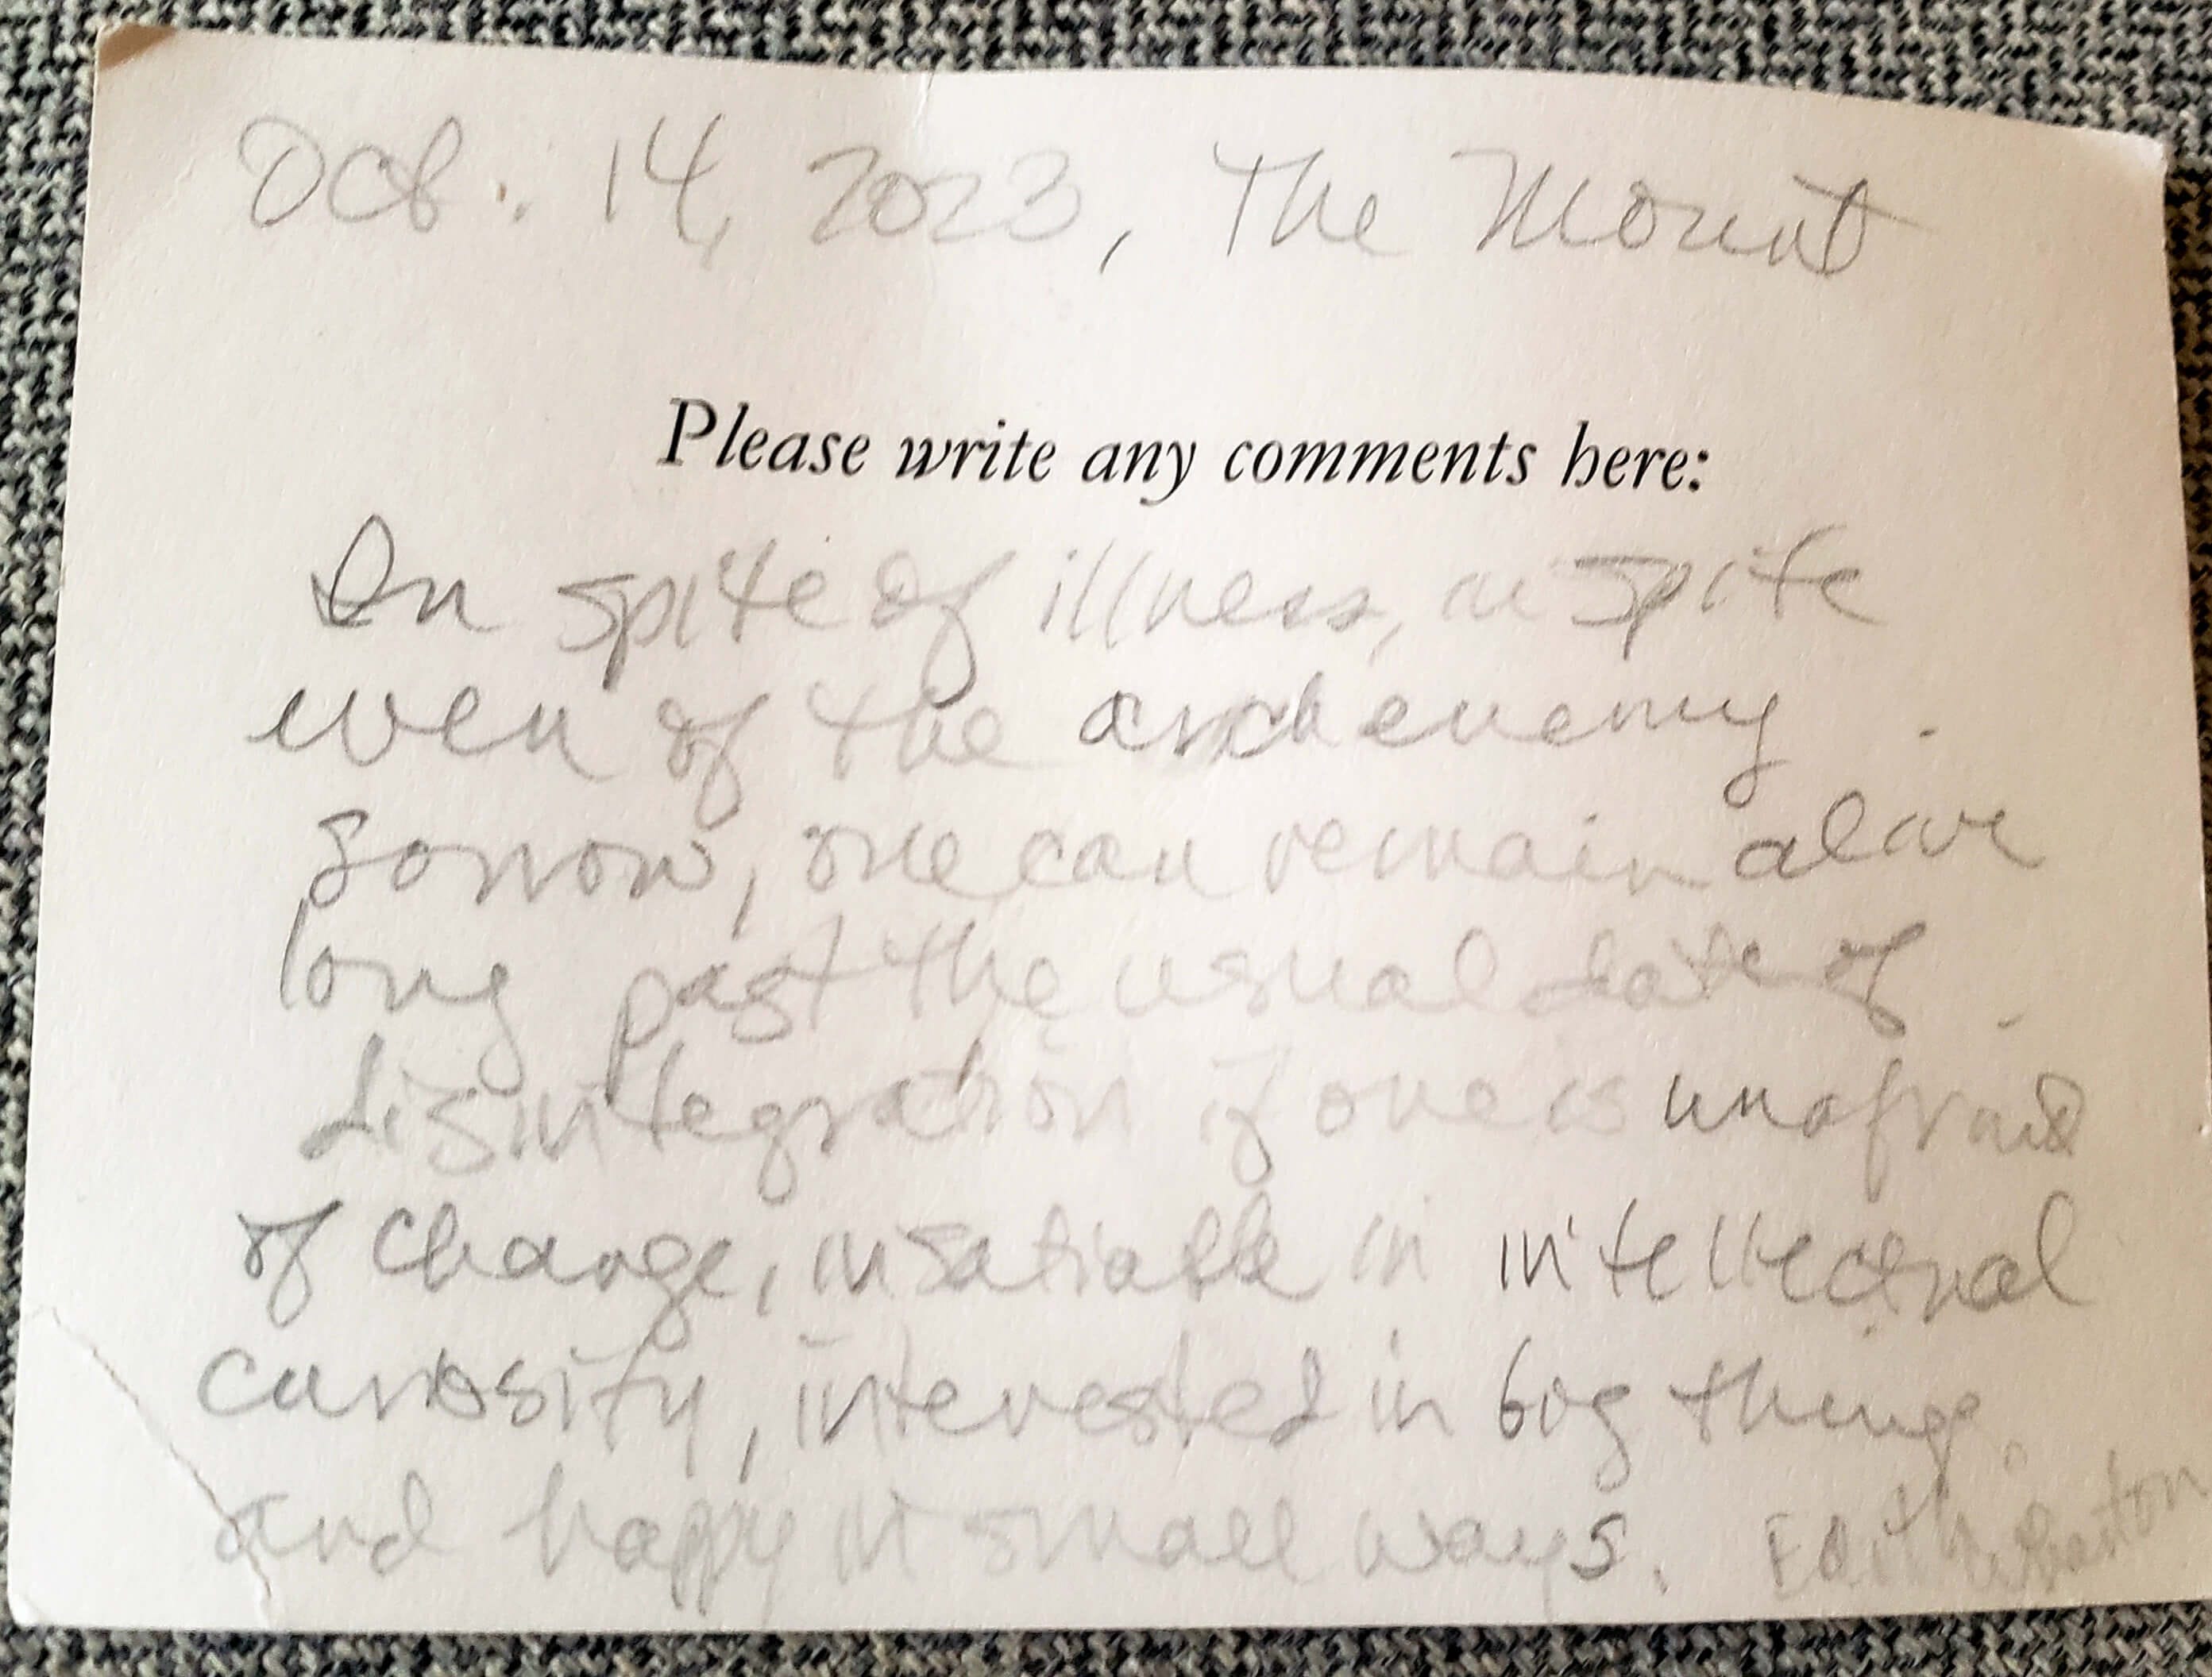 Oct. 14, 2023, The Mount
Please write any comments here:
In spite of illness, in spite
even of the archenemy
sorrow, one can remain alive
long past the usual date of
disintegration if one is unafraid
of change, insatiable in intellectual
curiosity, interested in big things,
and happy in small ways. Edith Wharton